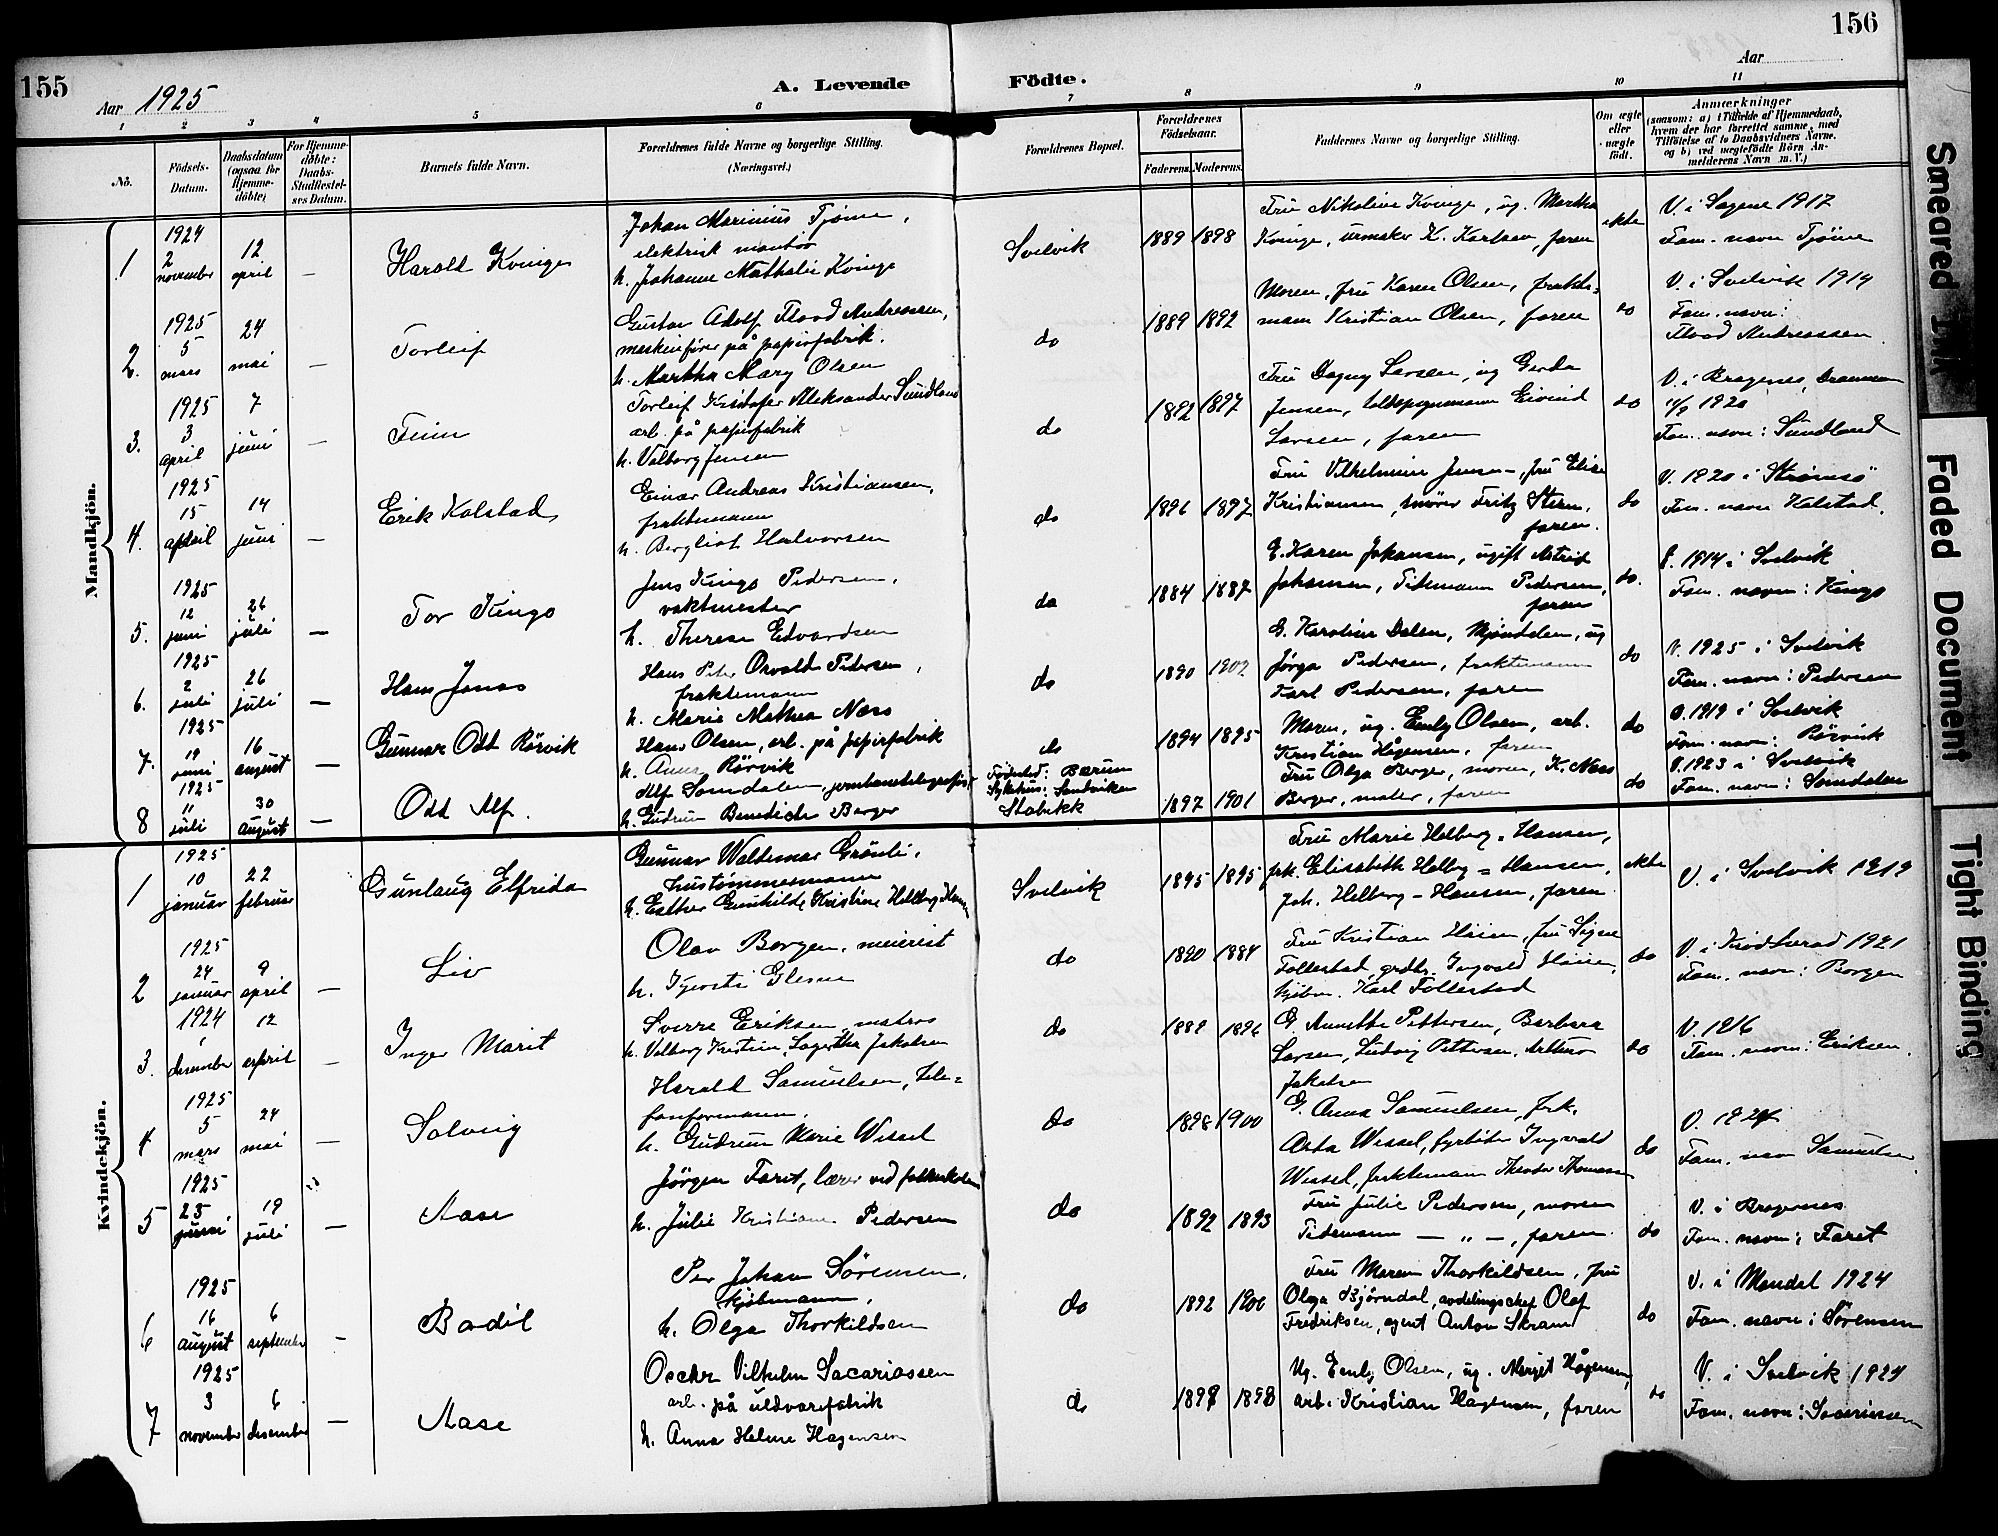 155
156
Aar 1925
A. Levende
Födte.
Aar
1 2 3 4 5 6 7 8 9 10 11
No.
Födsels-
Datum.
Daabsdatum
(ogsaa for
Hjemme-
döbte)
For Hjemme-
döbte:
Daabs-
Stadfæstel-
ses Datum.
Barnets fulde Navn.
Forældrenes fulde Navne og borgerlige Stilling.
(Næringsvei.)
Forældrenes Bopæl.
Forældrenes
Födselsaar.
Faderens. Moderens.
Faddernes Navne og borgerlige Stilling.
Om ægte
eller
uægte
födt.
Anmærkninger
(saasom: a) i Tilfælde af Hjemmedaab,
hvem der har forrettet samme, med
Tilföielse af to Daabsvidners Navne.
og b) ved uægtefödte Börn An-
melderens Navn m. V.)
Mandkjön.
1
1924
2
november
12
april
—
Harold Kvinge
Johan Marinius Tjöme,
elektrisk montör
h. Johanne Mathalie Kvinge
Svelvik
1889 1898
Fru Nikoline Kvinge, ug. Martha
Kvinge, urmaker K. Karlsen, faren
ekte
V. i Sagene 1917
Fam. navn Tjöme
2.
1925
5
mars
24
mai
—
Torleif
Gustav Adolf Flood Andreassen,
maskinfører på papirfabrik.
h. Martha Mary Olsen
do
1889 1892
Moren, fru Karen Olsen, frakte-
mann Kristian Olsen, faren
do
V. i Svelvik 1914
Fam. navn:
Flood Andreassen.
3.
1925
3
april
7
juni
—
Finn
Torleif Kristofer Aleksander Sundland
arb. på papirfabrik
h. Valborg Jensen
do
1892 1897
Fru Dagny Larsen, ug Gerda
Jensen, Eivind
Larsen, faren
do
V. i Bragenes, Drammen
1920
Fam. navn: Sundland
4.
1925
15
april
14
juni
—
Erik Kolstad
Einar Andreas Kristiansen,
fraktemann
h. Bergliot Halvorsen
do
1896 1897
Fru Vilhelmine Jensen, fru Elise
Kristiansen, Fritz Stern,
faren.
do
V. 1920 i Strömsö
Fam. navn Kolstad.
5.
1925
12
juni
26
juli
—
Tor Kingo
Jens Kingo Pedersen,
vaktmester
h. Therese Edvardsen
do
1884 1887
G. Karen Johansen, ugift Astrid
Johansen, Tidemann Pedersen,
faren
do.
1914 i Svelvik
Fam. navn: Kingo
6.
1925
2
juli
26
juli
—
Hans Jonas
Hans Peter Osvald Pedersen,
fraktemann
h. Marie Mathea Næss
do
1890 1902
G. Karoline Dalen, Mjöndalen, ug
Jørga Pedersen, fraktemann
Karl Pedersen, faren
do
V. 1925 i Svelvik
Fam. navn: Pedersen
7.
1925
19
juni
16
august
—
Gunnar Odd Rörvik
Hans Olsen, arb. på papirfabrik
h. Anna Rörvik
do
1894 1895
Moren, ug. Emly Olsen, arb.
Kristian Hågensen, faren
do
1919 i Svelvik
Fam. navn: Rörvik
8
1925
11
juli
30
august
—
Odd Alf.
Alf Somdalen, jernbanetelegrafist
h. Gudrun Benedicte Berger
Fødested: Bærum
Sykehus: Sandviken
Stabekk
1897 1901
Fru Olga Berger, moren, K. Næss
Berger, maler, faren
do
V. 1923 i Svelvik
Fam. navn: Somdalen
Kvindekjön.
1
1925
10
januar
22
februar
Gunlaug Elfrida
Gunnar Waldemar Grönli,
hustømmermann
h. Esther Gunhilde Kristine Helberg-Hansen
Svelvik
1895 1895
Fru Marie Helberg-Hansen,
frk. Elisabeth Helberg-Hansen,
Joh. Helberg-Hansen, faren
ekte
V. i Svelvik 1919
2
1925
24
januar
9
april
—
Liv
Olav Borgen, meierist
h. Kjersti Glesne
do
1890 1884
Fru Kristian Höien, fru Signe
Follestad, grdbr. Ingvald Höien,
kjøbm. Karl Follestad
do
V. i Krödsherad 1921
Fam. navn: Borgen
3.
1924
1
desember
12
april
—
Inger Marit
Sverre Eriksen, matros
h. Valborg Kristine Lagertha Jakobsen
do
1888 1896
G. Annette Pettersen, Barbara
Larsen, Ludvig Pettersen, Arthur
Jakobsen
do
V. 1916
Fam. navn: Eriksen.
4
1925
5
mars
24
mai
—
Solveig
Harald Samuelsen, tele-
fonformann.
h. Gudrun Marie Wessel
do
1898 1900
G. Anna Samuelsen, frk.
Asta Wessel, fyrbøter Ingvald
Wessel, fraktemann Theodor Thomassen
do
V. 1924
Fam. navn Samuelsen.
5
1925
23
juni
19
juli
—
Aase
Jörgen Faret, lærer ved folkeskolen
h. Julie Kristiane Pedersen
do
1892 1893
Fru Julie Pedersen, moren
Tidemann — „ —, faren.
do
V. i Bragernes
Fam. navn: Faret
6
1925
16
august
6
september
—
Bodil
Per Johan Sörensen,
kjøbmann,
h. Olga Thorkildsen
do
1892 1900
Fru Maren Thorkildsen, fru
Olga Bjørndal, avdelingschef Olaf
Fredriksen, agent Anton Skram
do
V. i Mandal 1924
Fam. navn: Sörensen
7
1925
3
november
6
desember
—
Aase
Oscar Vilhelm Sacariassen
arb. på uldvarefabrik
h. Anna Helene Hagensen
do
1898 1898
Ug. Emly Olsen, ug. Margit Hågensen,
arb. Kristian Hagensen, faren
do
V. i Svelvik 1924
Fam. navn: Sacariassen
Smeared Ink
Faded Document
Tight Binding